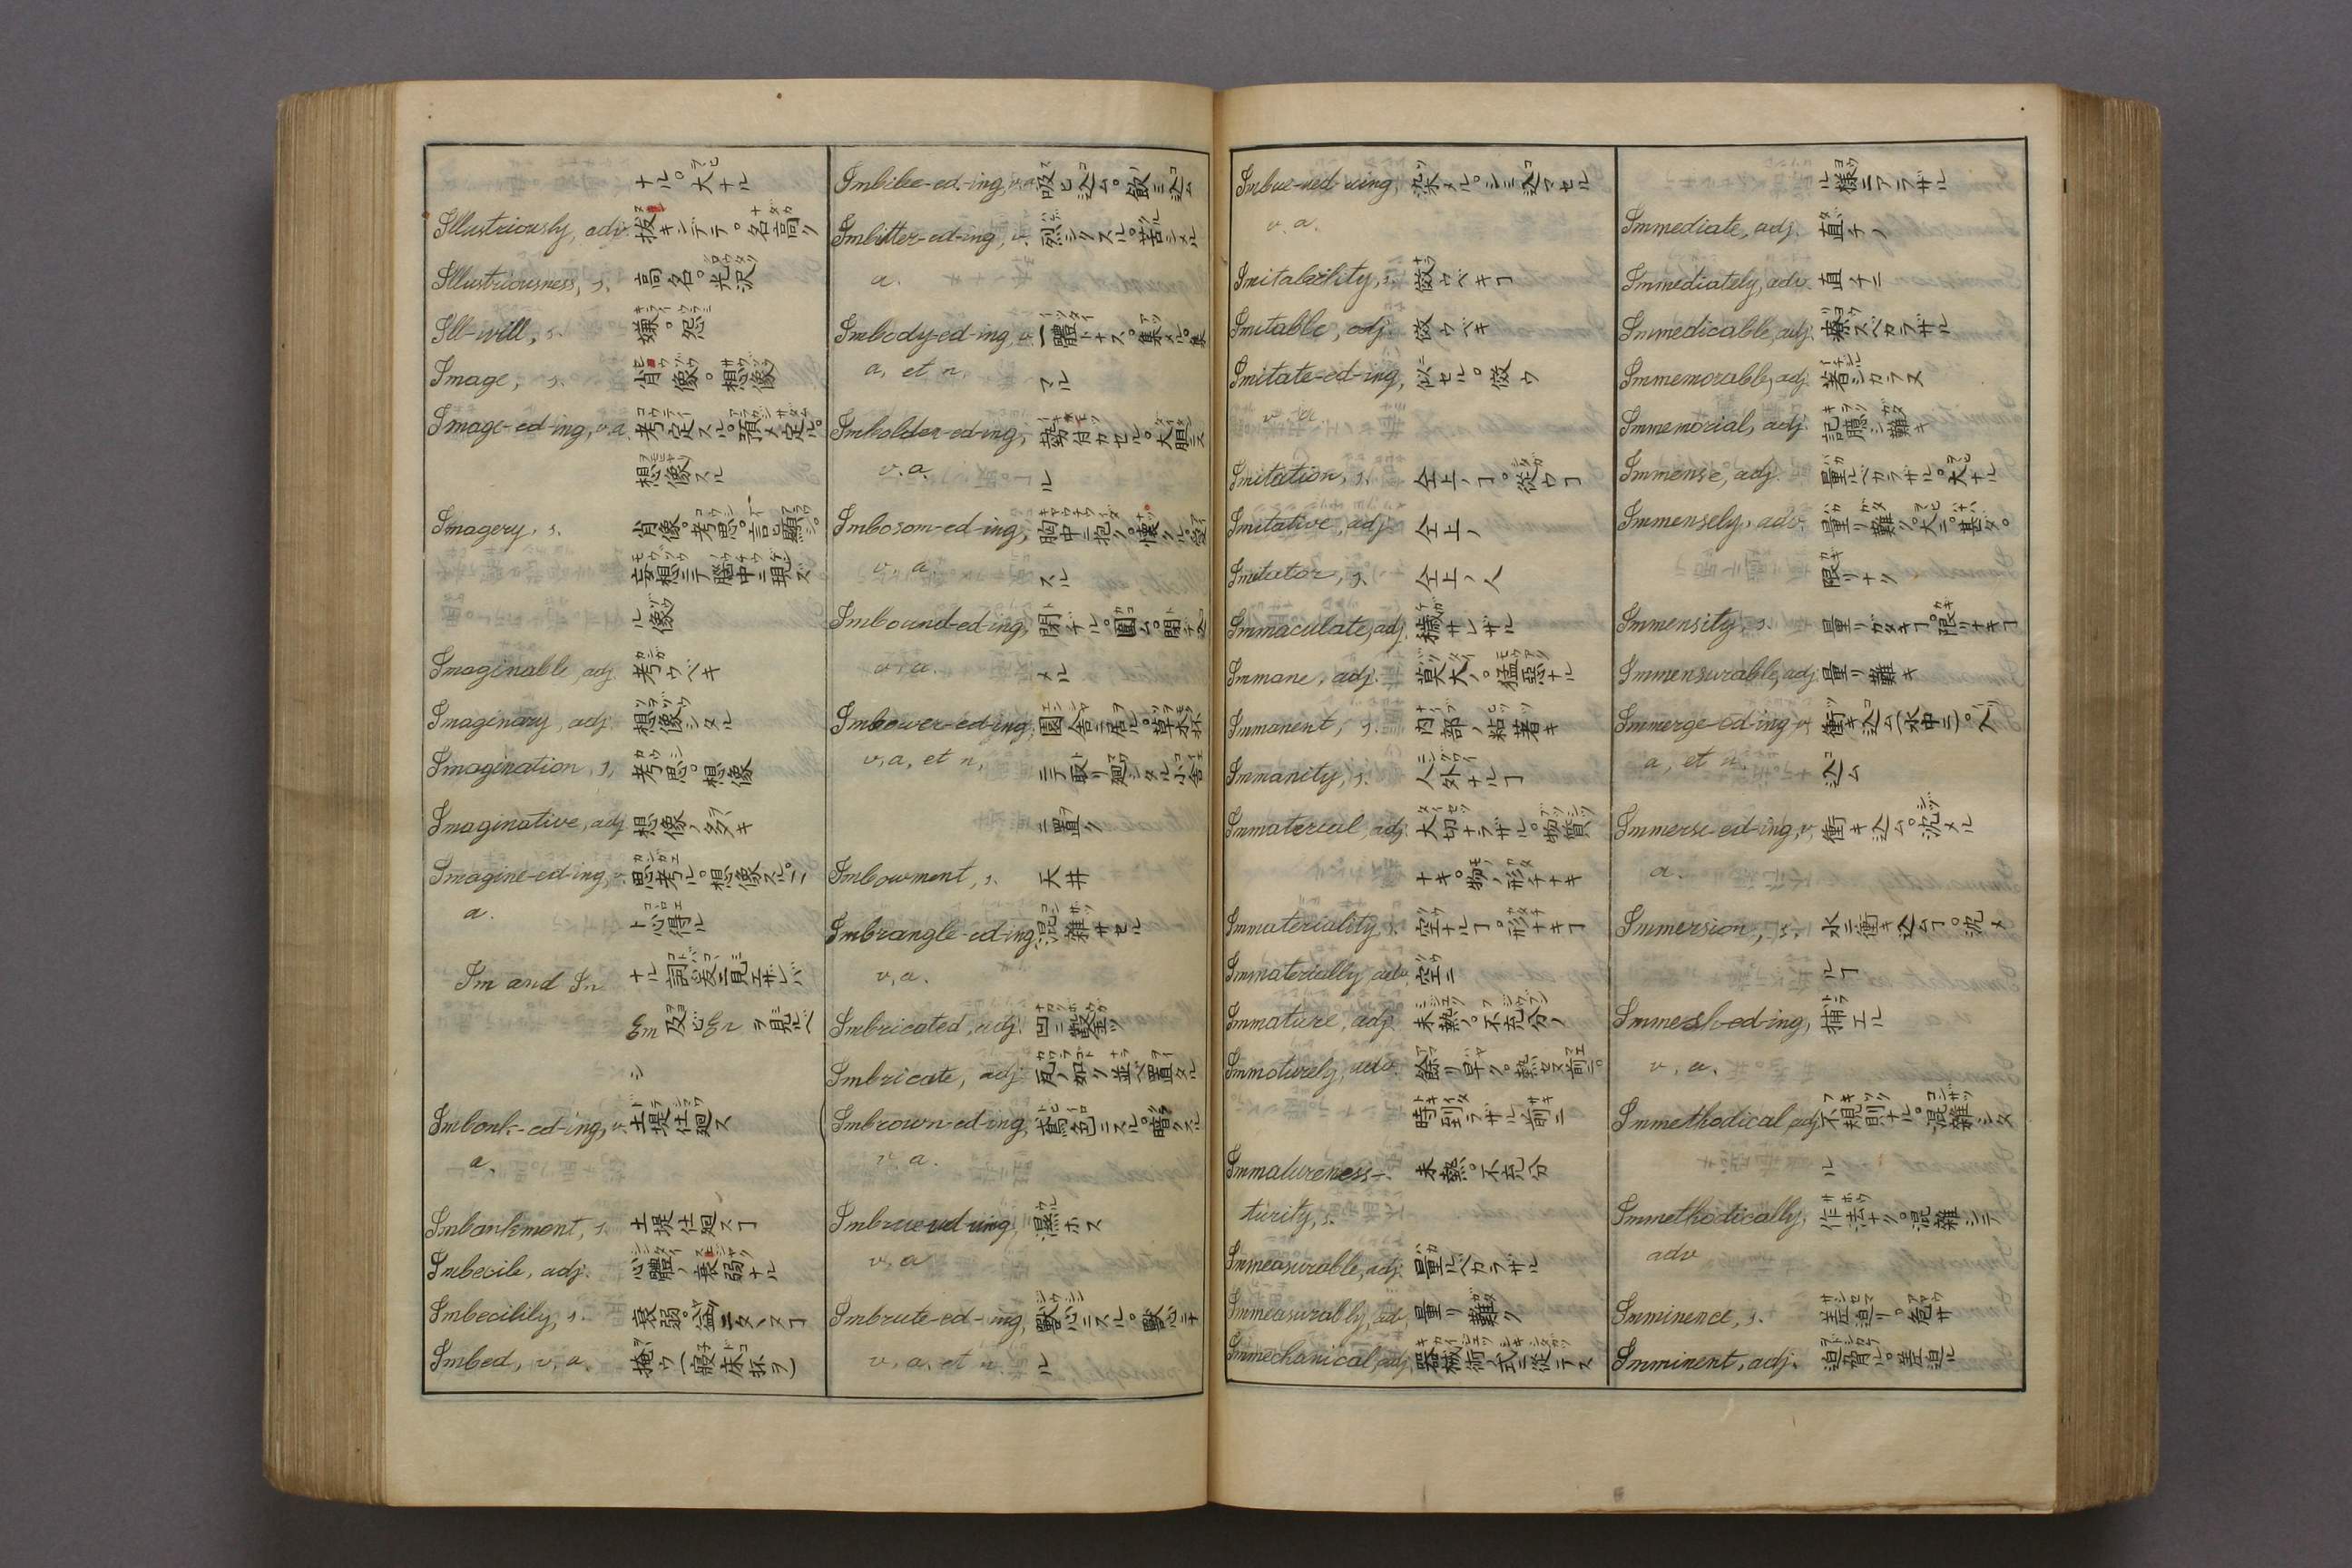 ナル。大ナル
Illustriously, adv. 抜キンデテ。名高ク
Illustriousness, s. 高名。光沢
Ill-will, s. 嫌。怨
Image, s. 肖像。想像
Image-ed-ing, v.a. 考定スル。預メ定ル。
想像スル
Imagery, s. 肖像。考思。言顕シ。
妄想ニテ脳中ニ現ズ
ル像
Imaginable, adj. 考ウベキ
Imaginary, adj. 想像シタル
Imagination, s, 考思。想像
Imaginative, adj. 想像ノ多キ
Imagine-ed-ing, v. 思考ル。想像スル。
a. ト心得ル
Im and In ナル詞爰ニ見エザレバ
Em 及ビ En ヲ見ルベ
シ
Imbank-ed-ing, v. 土堤仕廻ス
a.
Imbankment, s. 土堤仕廻スヿ
Imbecile, adj. 心體ノ衰弱ナル
Imbecility, s. 衰弱。
Imbed, v, a. 掩ウ(寝床抔ヲ)
Imbibe-ed-ing, v.a. 吸ヒ込ム。飲ミ込ム
Imbitter-ed-ing, v. 烈シクスル。苦シメル
a.
Imbody-ed-ing, v. 一體トナス。集メル。集
a, et n. マル
Imbolden-ed-ing, 勢付カセル。大胆ニス
v.a. ル
Imbosom-ed-ing, 胸中ニ抱ク。懐クル。愛
v. a. スル
Imbound-ed-ing, 閉ヂル。圍ム。閉ヂ込
v. a. メル
Imbower-ed-ing, 園舎ニ居ル。草木抔
v, a, et n, ニテ取リ廻シタル小舎
ニ置ク
Imbowment, s. 天井
Imbrangle-ed-ing, 混雑サセル
v, a.
Imbricated, adj. 凹ニ
Imbricate, adj. 瓦ノ如ク並ベ置タル
Imbrown-ed-ing, 鳶色ニスル。暗クスル
v a.
Imbrue-ued-uing, 濕ホス
v, a
Imbrute-ed-ing, 獣心ニスル。獣心ニナ
v, a, et n. ル
Imbue-ued-uing, 染メル。シミ込マセル
v. a.
Imitability, s. 倣ウベキヿ
Imitable, adj. 倣ウベキ
Imitate-ed-ing, 似セル。倣ウ
v. a.
Imitation, s. 仝上ノヿ。從ウヿ
Imitative, adj. 仝上ノ
Imitator, s. 仝上ノ人
Immaculate, adj. 穢サレザル
Immane, adj. 莫大ノ。猛悪ナル
Immanent, s. 内部ノ粘著キ
Immanity, s. 人外ナルヿ
Immaterial, adj. 大切ナラザル。物質
ナキ。物ノ形チナキ
Immateriality, s. 空ナルヿ。形ナキヿ
Immaterially, adv. 空ニ
Immature, adj. 未熟ノ。不充分ノ
Immaturely, adv. 餘リ早ク。熟セヌ前ニ。
時到ラザル前ニ
Immatureness-. 未熟。不充分
turity, s.
Immeasurable, adj. 量ルベカラザル
Immeasurably, adv. 量リ難ク
Immechanical, adj. 器械術ノ式ニ從ヲヌ
ル様ニアラザル
Immediate, adj. 直チノ
Immediately, adv. 直チニ
Immedicable, adj. 療ズベカラザル
Immemorable, adj. 著シカラヌ
Immemorial, adj. 記臆シ難キ
Immense, adj. 量ルベカラザル。大ナル
Immensely, adv. 量リ難ク。大ニ。甚タ。
限リナク
Immensity, s. 量リガタキヿ。限リナキヿ
Immensurable, adj. 量リ難キ
Immerge-ed-ing, v. 衝キ込ム(水中ニ)。入リ
a, et n. 込ム
Immerse-ed-ing, v, 衝キ込ム。沈メル
a.
Immersion, s. 水ニ衝キ込ムヿ。沈メ
ルヿ
Immesh-ed-ing, 捕エル
v, a.
Immethodical, adj. 不規則ナル。混雑シタ
ル
Immethodically, 作法ナク。混雑シテ
adv
Imminence, s. 差迫リ。危サ
Imminent, adj. 迫脅ル。差迫ル